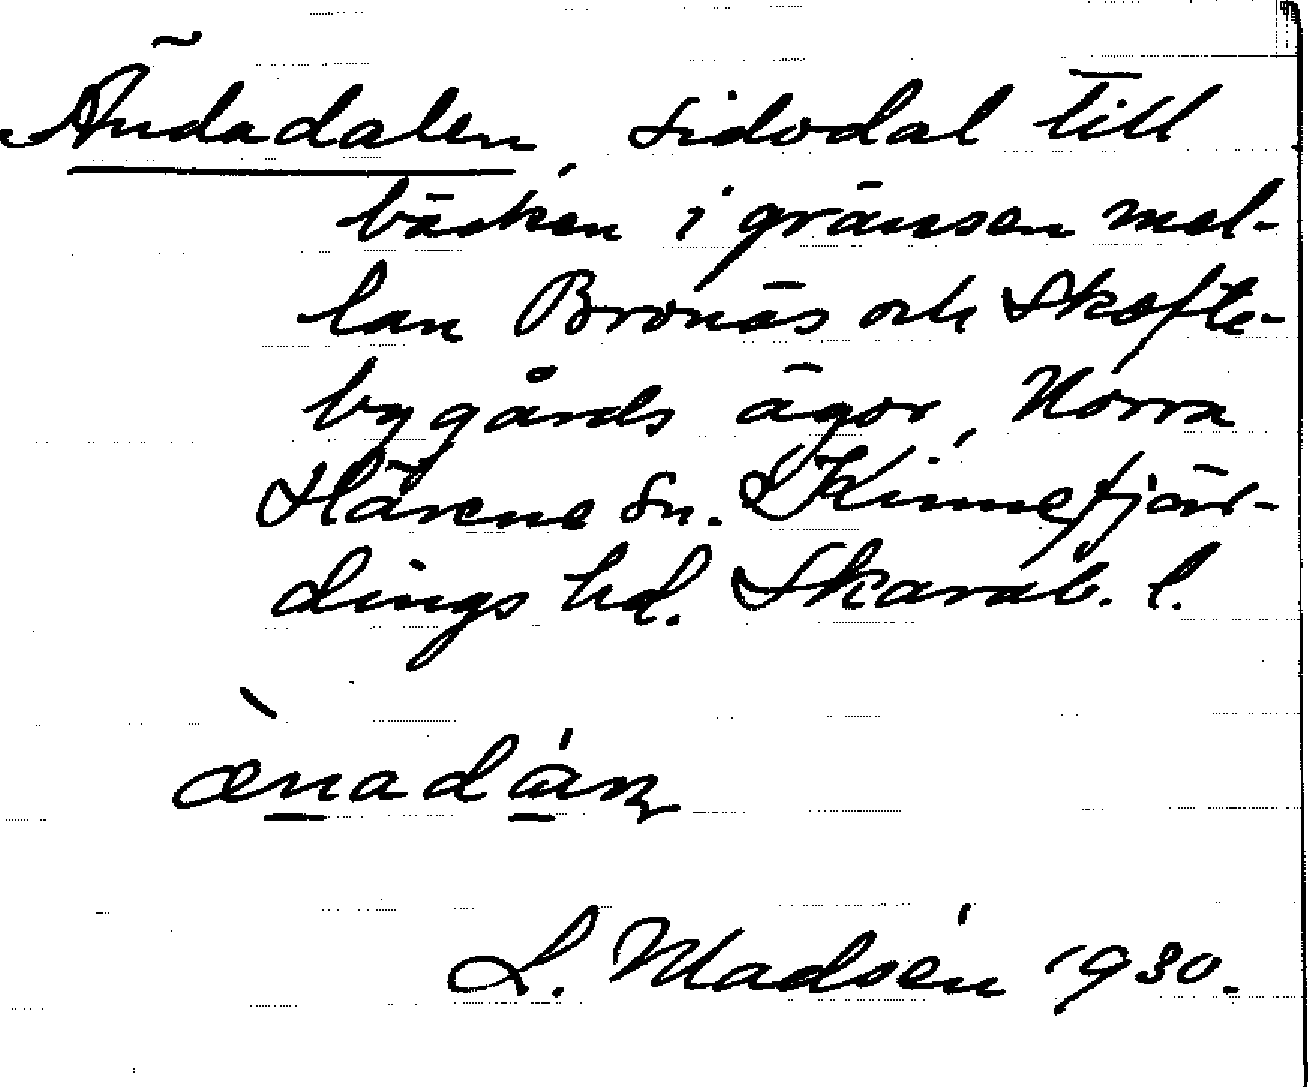 Ändadalen, sidodal till
bäcken i gränsen mel-
lan Bronäs och Skofte-
bygårds ägor, Norra
Härene sn. Kinnefjär-
dings hd. Skarab. l.
L. Madsén 1930.